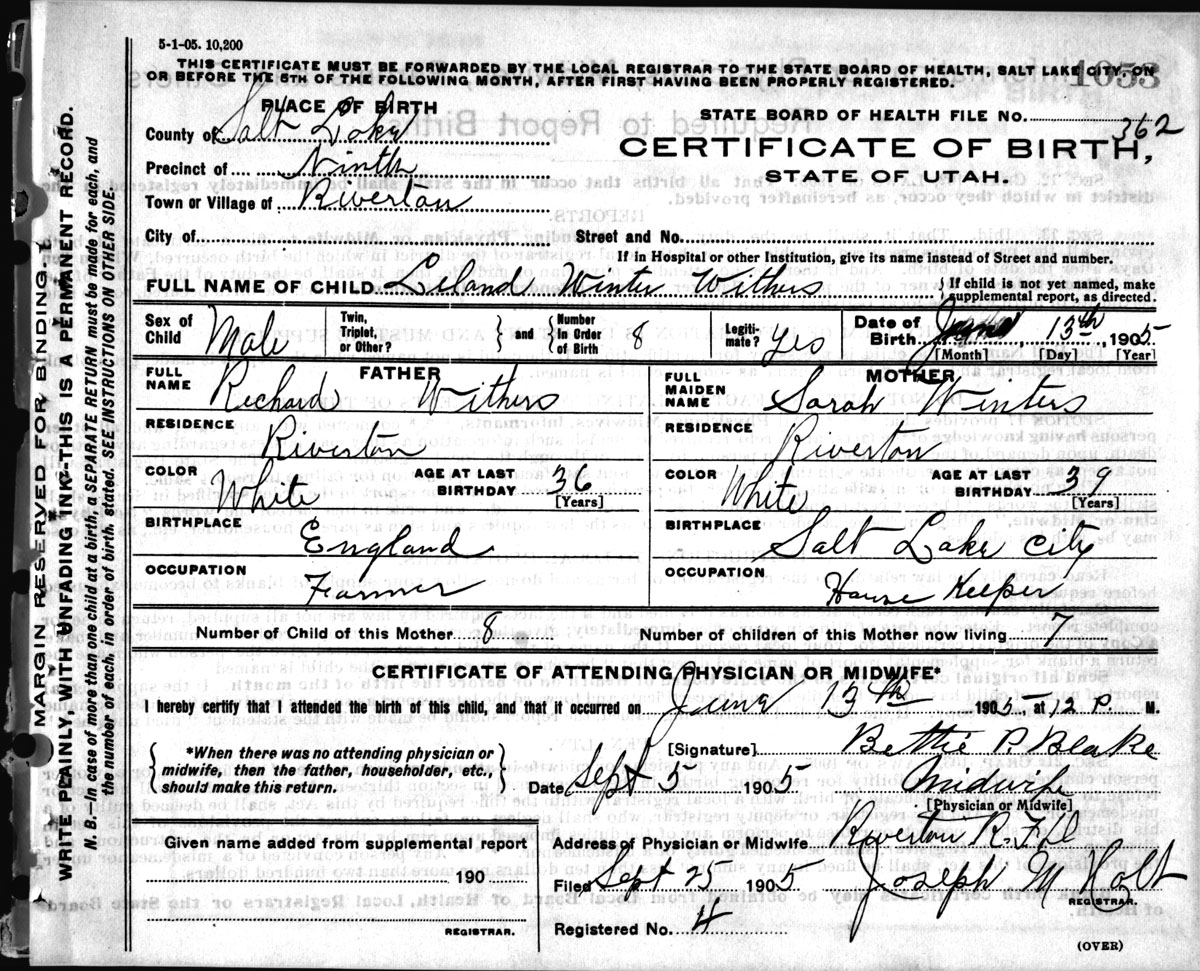 5-1-05. 10,200
THIS CERTIFICATE MUST BE FORWARDED BY THE LOCAL REGISTRAR TO THE STATE BOARD OF HEALTH, SALT LAKE CITY, ON
OR BEFORE THE 5TH OF THE FOLLOWING MONTH, AFTER FIRST HAVING BEEN PROPERLY REGISTERED.
1053
PLACE OF BIRTH
STATE BOARD OF HEALTH FILE No. 362
County of Salt Lake
CERTIFICATE OF BIRTH,
Precinct of Ninth
STATE OF UTAH.
Town or Village of Riverton
City of Street and No.
If in Hospital or other Institution, give its name instead of Street and number.
FULL NAME OF CHILD Leland Winter Withers
{If child is not yet named, make
supplemental report, as directed.
Sex of Child Male
Twin, Triplet, or Other? } and { Number In Order of Birth 8
Legiti-mate? Yes
Date of Birth June 13th 1905
[Month] [Day] [Year]
FATHER
FULL NAME Richard Withers
MOTHER
FULL MAIDEN NAME Sarah Winters
RESIDENCE Riverton
RESIDENCE Riverton
COLOR White AGE AT LAST BIRTHDAY 36 [Years]
COLOR White AGE AT LAST BIRTHDAY 39 [Years]
BIRTHPLACE England
BIRTHPLACE Salt Lake City
OCCUPATION Farmer
OCCUPATION House Keeper
Number of Child of this Mother 8 Number of children of this Mother now living 7
CERTIFICATE OF ATTENDING PHYSICIAN OR MIDWIFE*
I hereby certify that I attended the birth of this child, and that it occurred on June 13th 1905, at 12 P. M.
{*When there was no attending physician or
midwife, then the father, householder, etc.,
should make this return.}
[Signature] Bettie P. Blake
Date Sept 5 1905 Midwife
[Physician or Midwife]
Given name added from supplemental report
190
REGISTRAR.
Address of Physician or Midwife Riverton R.F.
Filed Sept 25 1905 Joseph M Holt
REGISTRAR.
Registered No. 4
(OVER)
MARGIN RESERVED FOR BINDING
WRITE PLAINLY, WITH UNFADING INK-THIS IS A PERMANENT RECORD.
N. B.-In case of more than one child at a birth, a SEPARATE RETURN must be made for each, and
the number of each, in order of birth, stated. SEE INSTRUCTIONS ON OTHER SIDE.